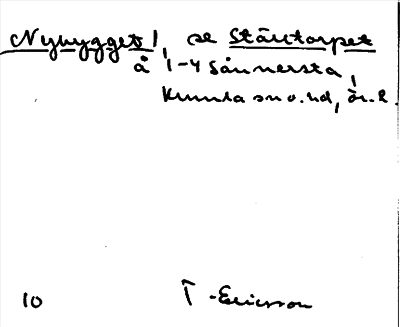 Nybygget 1, se Stäutorpet
å 1-4 Sånnersta,
Kumla sn o. hd, Ör. l.
10 T-Ericsson